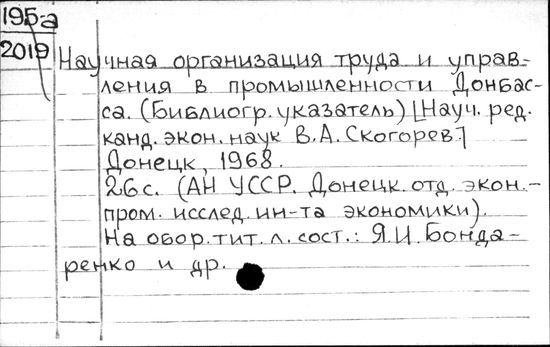 195-а
2019
Научная организация труда и управ-
ления в промышленности Донбас-
са. (Библиогр. указатель) [Науч. ред.
канд. экон. наук В.А. Скогорев.]
Донецк, 1968.
26 с. (АН УССР. Донецк. отд. экон.-
пром. исслед. ин-та экономики).
На обор. тит. л. сост.: Я.И. Бонда-
ренко и др.